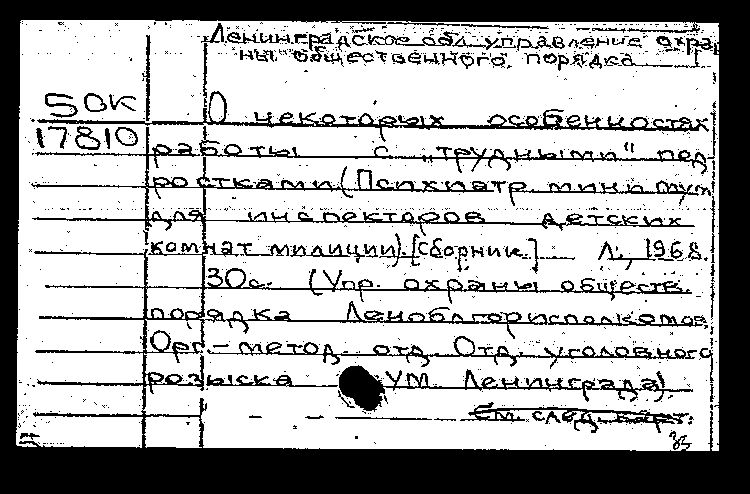 Ленинградское обл. управление охра
ны общественного порядка
50К
17810
О некоторых особенностях
работы с „трудными" под
ростками (Психиатр. миним ум
для инспекторов детских
комнат милиции). [Сборник.] Л., 1968.
30с. (Упр. охраны обществ.
порядка Леноблгорисполкомов.
Орг.-метод. отд. Отд. уголовного
розыска УМ. Ленинграда).
См след. карт.